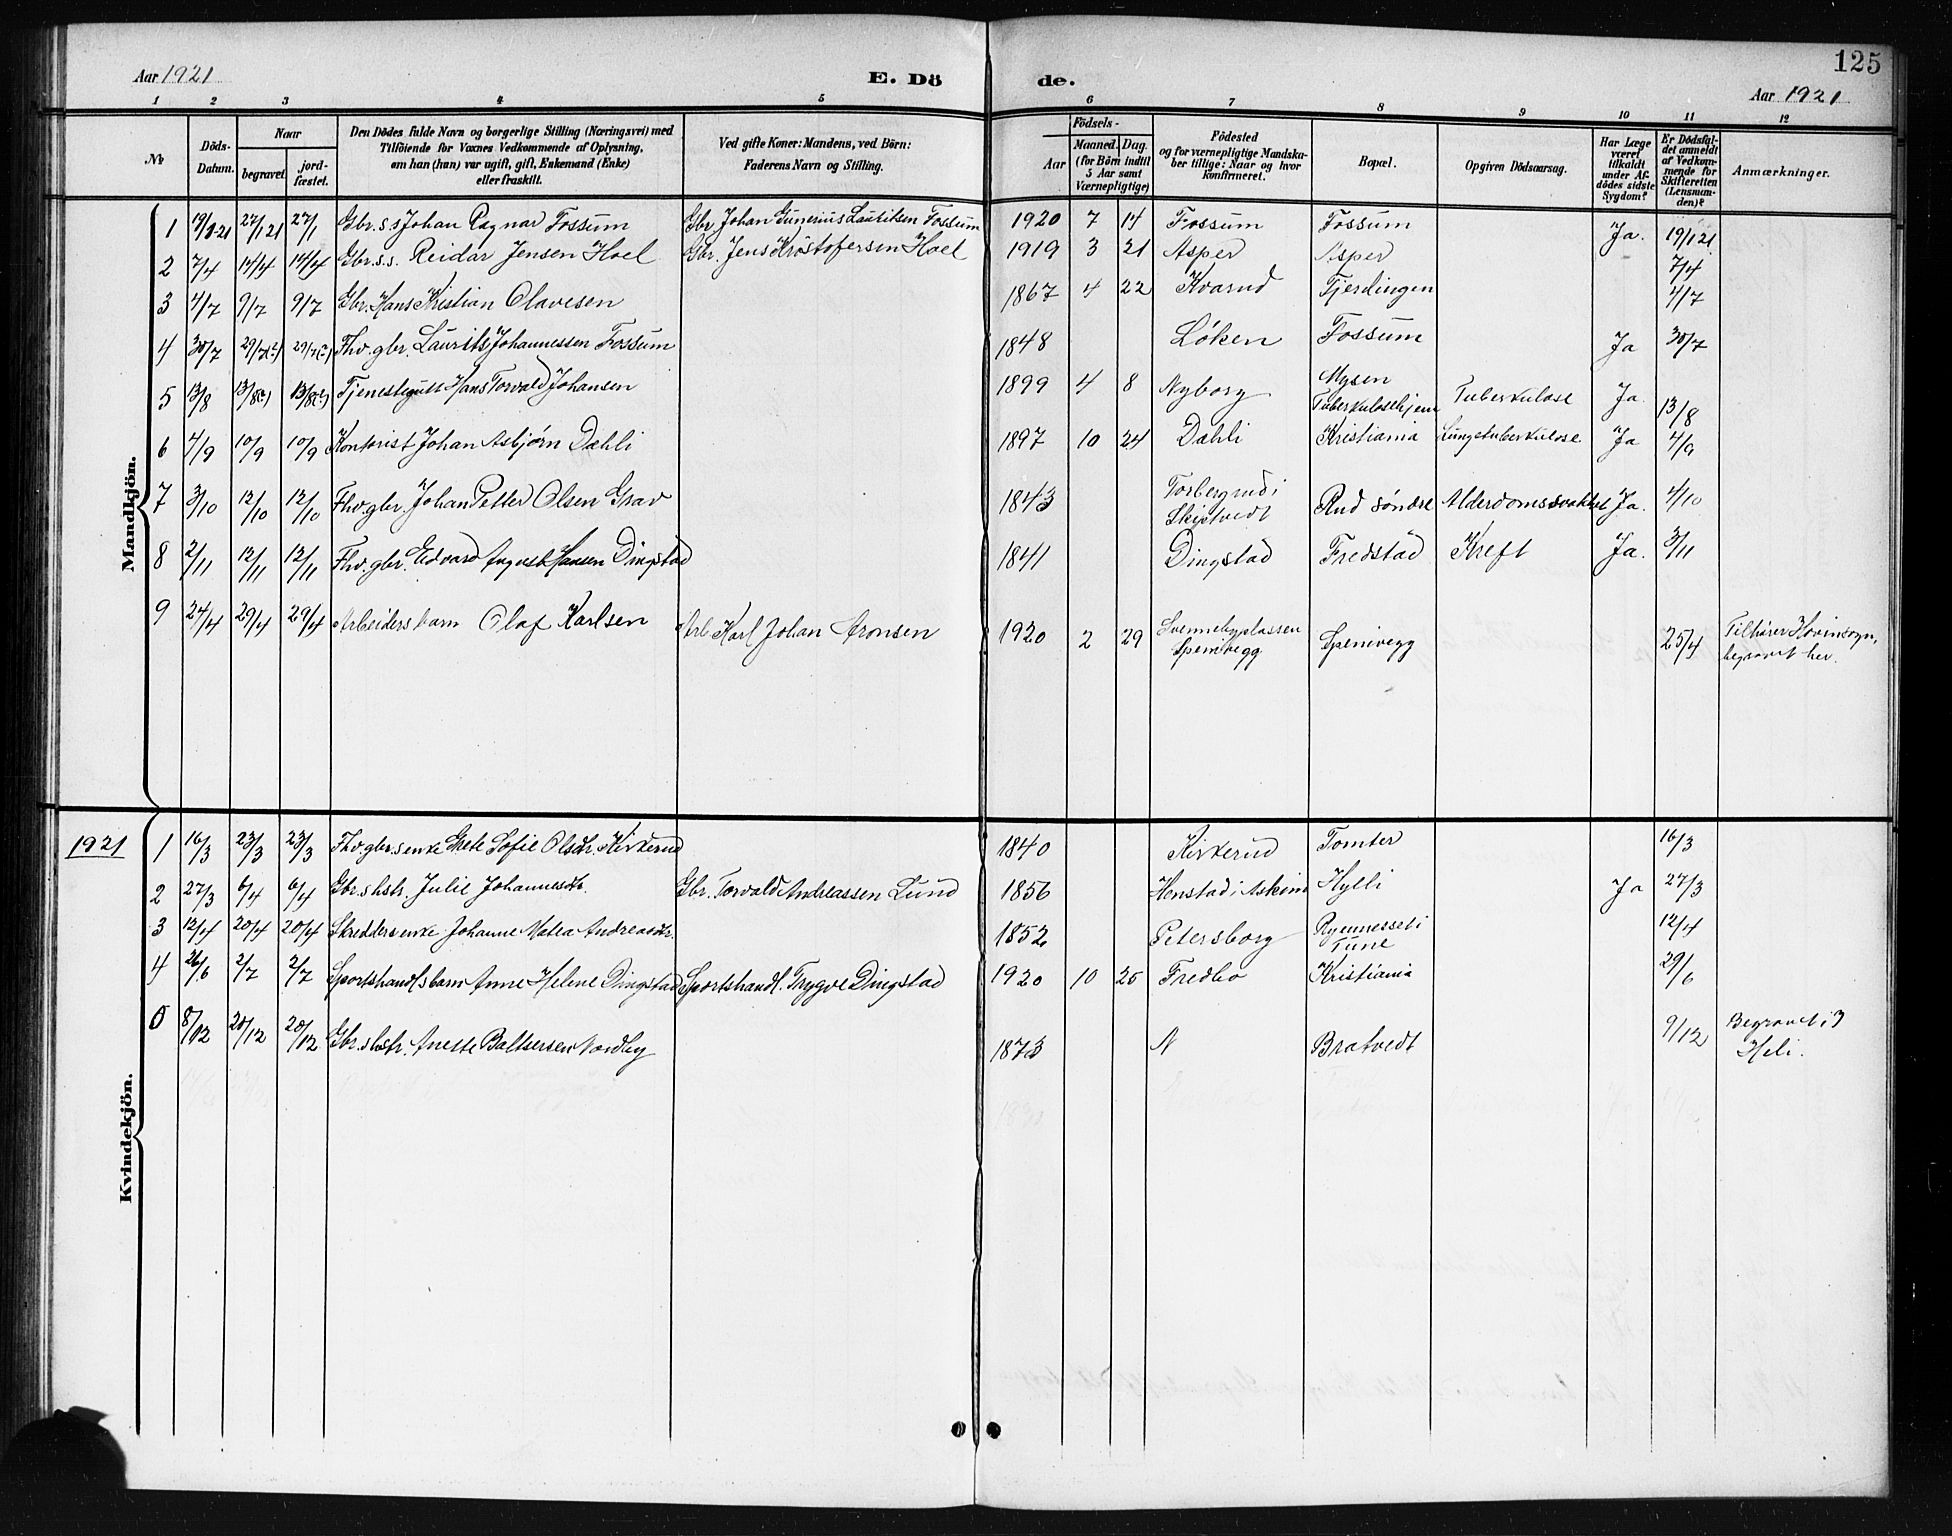 125
Aar 1921
E. Dö
de.
Aar 1921
1 2 3 4 5 6 7 8 9 10 11 12
№
Döds-
Datum.
Naar
begravet.
jord-
fæstet.
Den Dödes fulde Navn og borgerlige Stilling (Næringsvei) med
Tilföiende for Voxnes Vedkommende af Oplysning,
om han (hun) var ugift, gift, Enkemand (Enke)
eller fraskilt.
Ved gifte Koner: Mandens, ved Börn:
Faderens Navn og Stilling.
Födsels-
Aar
Maaned. Dag.
(for Börn indtil
5 Aar samt
Værnepligtige)
Födested
og for værnepligtige Mandska-
ber tillige: Naar og hvor
konfirmeret.
Bopæl.
Opgiven Dödsaarsag.
Har Læge
været
tilkaldt
under Af-
dödes sidste
Sygdom?
Er Dödsfal-
det anmeldt
af Vedkom-
mende for
Skifteretten
(Lensman-
den)?
Anmærkninger.
Mandkjön.
1 19/1-21 27/1 21 27/1 Gbr.s.s Johan Ragnar Fossum Gbr. Johan Gunerius Lauritsen Fossum 1920 7 14 Fossum Fossum Ja. 19/1 21
2 7/4 14/4 14/4 Gbr.s.s. Reidar Jensen Hoel Gbr. Jens Kristofersen Hoel 1919 3 21 Asper Asper 7/4
3 4/7 9/7 9/7 Gbr. Hans Kristian Olavesen 1867 4 22 Kvarud Tjerdingen 4/7
4 30/7 29/7(?) 29/7(?) Fhv. gbr. Laurits Johannessen Fossum 1848 Løken Fossum Ja 30/7
5 13/8 13/8(?) 13/8(?) Tjenestegutt Hans Torvald Johansen 1899 4 8 Nyborg Mysen
Tuberkulosehjem Tuberkulose Ja 13/8
6 4/9 10/9 10/9 Kontorist Johan Asbjørn Dahli 1897 10 24 Dahli Kristiania Lungetuberkulose Ja 4/9
7 3/10 12/10 12/10 Fhv. gbr. Johan Petter Olsen Grav 1843 Torbergrud i
Skiptvedt Rud søndre Alderdomssvakhet Ja. 4/10
8 2/11 12/11 12/11 Fhv. gbr. Edvard August Hansen Dingstad 1841 Dingstad Fredstad Kreft Ja. 3/11
9 24/4 29/4 29/4 Arbeiders barn Olaf Karlsen Arb. Karl Johan Aronsen 1920 2 29 Svennebyplassen
Spenivegg Spenivegg 25/4 Tilhører Hovinsogn,
begravet her.
Kvindekjön.
1921
1 16/3 23/3 23/3 Fhv. gbr.s enke Grete Sofie Olsdtr. Kirkerud 1840 Kirkerud Tomter 16/3
2 27/3 6/4 6/4 Gbr.s hstr. Julie Johannesdtr. Gbr. Torvald Andreassen Lund 1856 Henstad i Askim Hylli Ja 27/3
3 12/4 20/4 20/4 Skredders enke Johanne Matea Andreasdtr. 1852 Petersborg
Tune 12/4
4 26/6 2/7 2/7 Sportshandl.s barn Anne Helene Dingstad Sportshandl. Trygve Dingstad 1920 10 25 Fredbo Kristiania 29/6
5 8/12 20/12 20/12 Gbr.s hstr. Anette Baltsersen Nordby 1873 N Bratvedt 9/12 Begravet i
Heli.